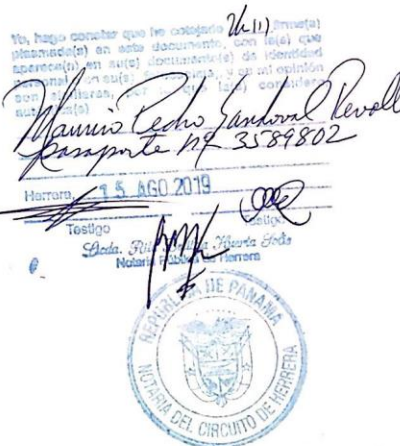 Yo, hago constar que he cotejado 2h (1) firma(s)
plasmada(s) en este documento, con la(s) que
aparece(n) en su(s) documento(s) de identidad
personal en su(s) y en mi opinión
son similares, por lo que la(s) considero
Mauricio Pedro Sandoval
pasaporte Nº 3589802
Herrera, 15 AGO 2019
Testigo Testigo
Licda.
Notaria Pública de Herrera
REPÚBLICA DE PANAMÁ
NOTARIA DEL CIRCUITO DE HERRERA